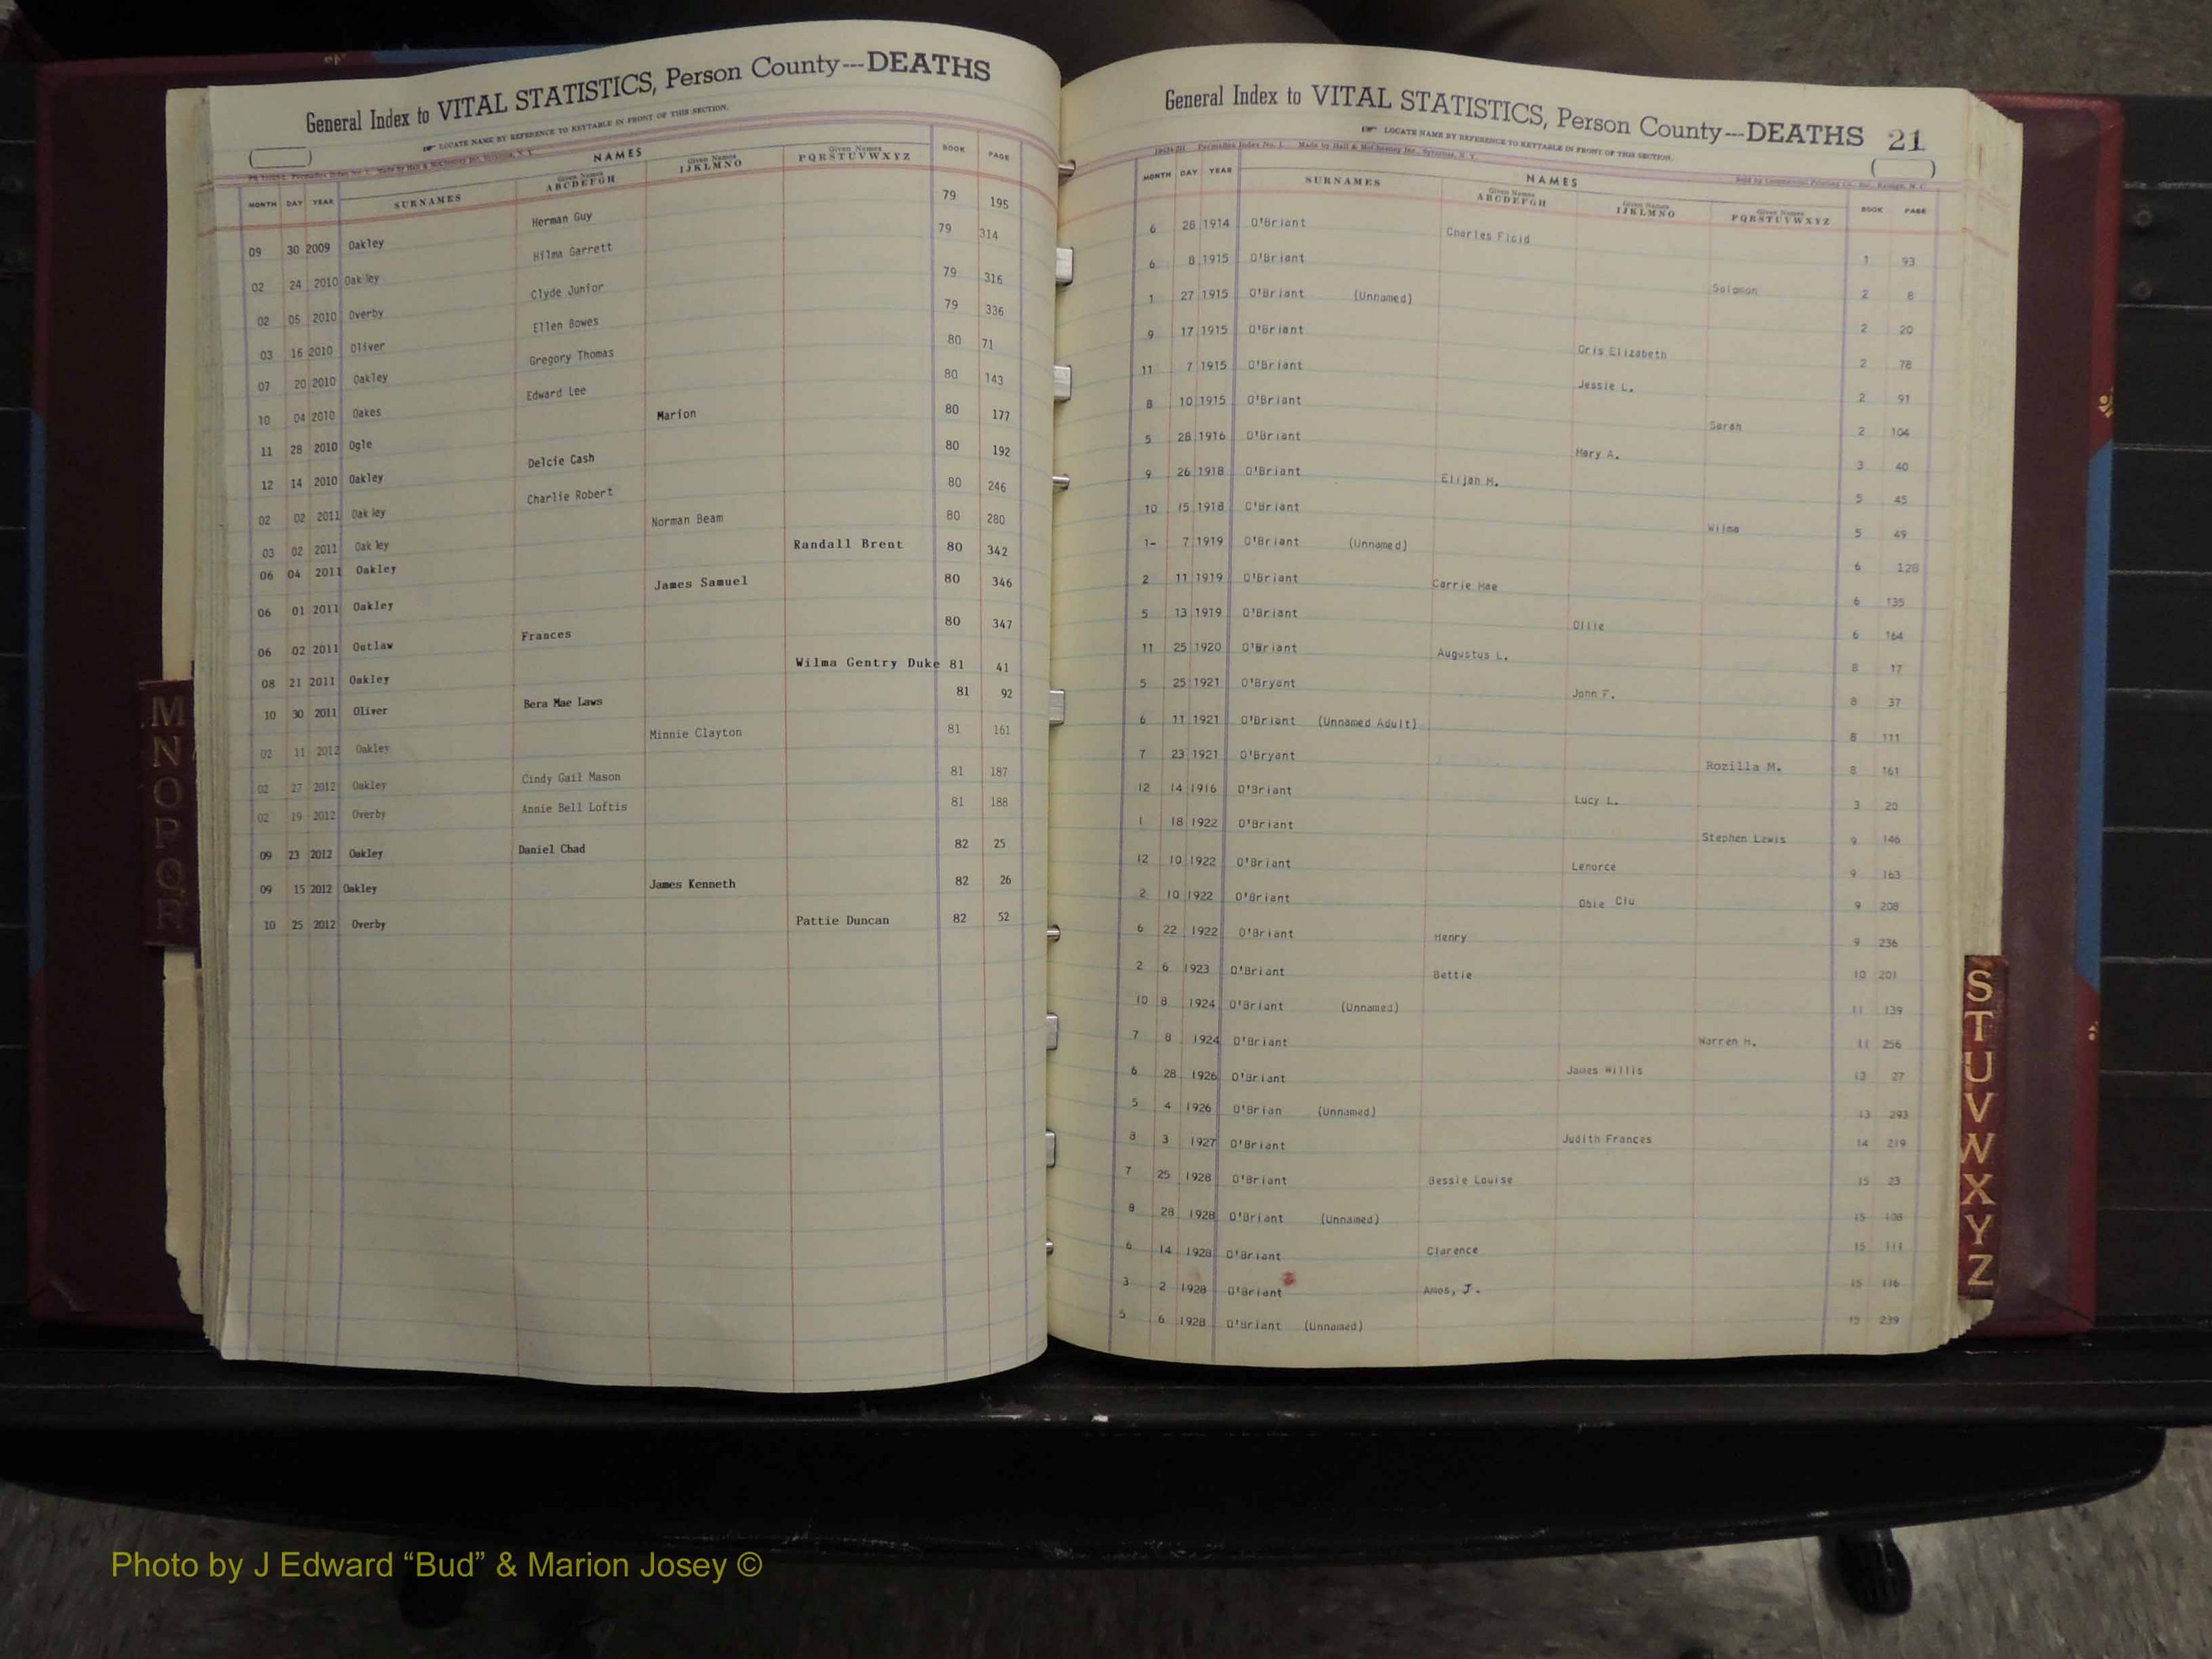 General Index to VITAL STATISTICS, Person County---DEATHS
LOCATE NAME BY REFERENCE TO KEYTABLE IN FRONT OF THIS SECTION.
NAMES
MONTH DAY YEAR SURNAMES Given Names ABCDEFGH Given Names IJKLMNO Given Names PQRSTUVWXYZ BOOK PAGE
09 30 2009 Oakley Herman Guy 79 195
02 24 2010 Oakley Hilma Garrett 79 314
02 05 2010 Overby Clyde Junior 79 316
03 16 2010 Oliver Ellen Bowes 79 336
07 20 2010 Oakley Gregory Thomas 80 71
10 04 2010 Oakes Edward Lee 80 143
11 28 2010 Ogle Marion 80 177
12 14 2010 Oakley Delcie Cash 80 192
02 02 2011 Oakley Charlie Robert 80 246
03 02 2011 Oakley Norman Beam 80 280
06 04 2011 Oakley Randall Brent 80 342
06 01 2011 Oakley James Samuel 80 346
06 02 2011 Outlaw Frances 80 347
08 21 2011 Oakley Wilma Gentry Duke 81 41
10 30 2011 Oliver Bera Mae Laws 81 92
02 11 2012 Oakley Minnie Clayton 81 161
02 27 2012 Oakley Cindy Gail Mason 81 187
02 19 2012 Overby Annie Bell Loftis 81 188
09 23 2012 Oakley Daniel Chad 82 25
09 15 2012 Oakley James Kenneth 82 26
10 25 2012 Overby Pattie Duncan 82 52
M
N
O
P
Q
R
General Index to VITAL STATISTICS, Person County---DEATHS 21
LOCATE NAME BY REFERENCE TO KEYTABLE IN FRONT OF THIS SECTION.
Made by Hall & McChesney Inc., Syracuse, N. Y.
NAMES
MONTH DAY YEAR SURNAMES Given Names ABCDEFGH Given Names IJKLMNO Given Names PQRSTUVWXYZ BOOK PAGE
6 28 1914 O'Briant Charles Floid 1 93
6 8 1915 O'Briant Solomon 2 8
1 27 1915 O'Briant (Unnamed) 2 20
9 17 1915 O'Briant Oris Elizabeth 2 78
11 7 1915 O'Briant Jessie L. 2 91
8 10 1915 O'Briant Sarah 2 104
5 28 1916 O'Briant Mary A. 3 40
9 26 1918 O'Briant Elijah M. 5 45
10 15 1918 O'Briant Wilma 5 49
1- 7 1919 O'Briant (Unnamed) 6 128
2 11 1919 O'Briant Carrie Mae 6 135
5 13 1919 O'Briant Ollie 6 164
11 25 1920 O'Briant Augustus L. 8 17
5 25 1921 O'Bryant John F. 8 37
6 11 1921 O'Briant (Unnamed Adult) 8 111
7 23 1921 O'Bryant Rozilla M. 8 161
12 14 1916 O'Briant Lucy L. 3 20
1 18 1922 O'Briant Stephen Lewis 9 146
12 10 1922 O'Briant Lenorce 9 163
2 10 1922 O'Briant Obie Clu 9 208
6 22 1922 O'Briant Henry 9 236
2 6 1923 O'Briant Bettie 10 201
10 8 1924 O'Briant (Unnamed) 11 139
7 8 1924 O'Briant Warren H. 11 256
6 28 1926 O'Briant James Willis 13 27
5 4 1926 O'Brian (Unnamed) 13 293
8 3 1927 O'Briant Judith Frances 14 219
7 25 1928 O'Briant Bessie Louise 15 23
8 28 1928 O'Briant (Unnamed) 15 108
6 14 1928 O'Briant Clarence 15 111
3 2 1928 O'Briant Amos, J. 15 116
5 6 1928 O'Briant (Unnamed) 15 239
S
T
U
V
W
X
Y
Z
Photo by J Edward “Bud” & Marion Josey ©